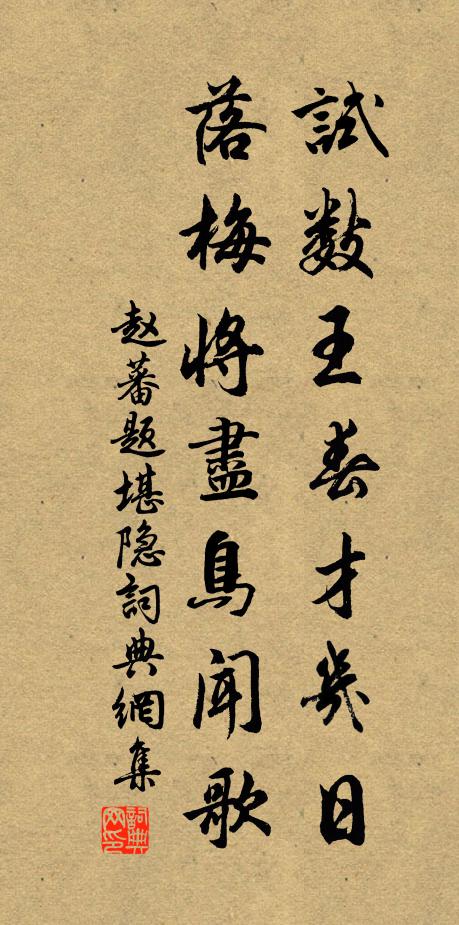 試數王春才幾日
落梅將盡鳥聞歌
赵蕃題堪隐詞典網集
詞典网印